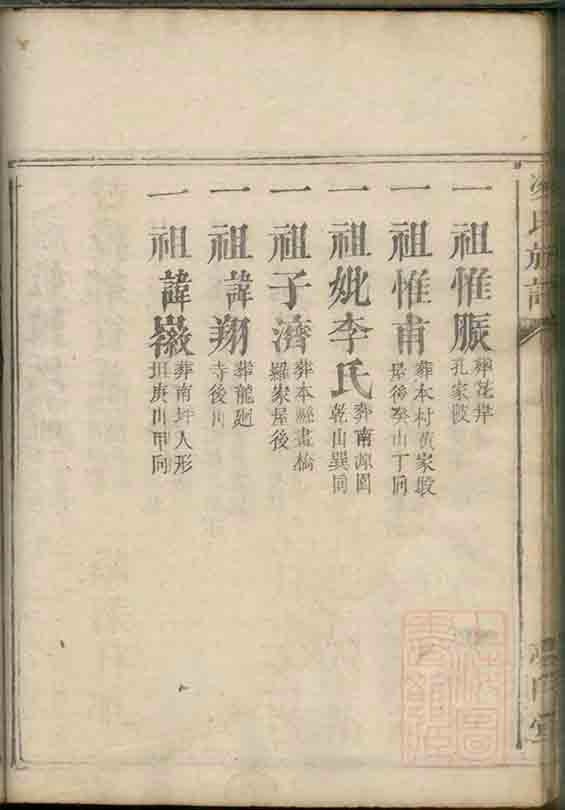 一祖惟賑 葬花岸
孔家陂
一祖惟甫 葬本村黃家墩
屋後癸山丁向
一祖妣李氏 葬南源園
乾山巽向
一祖子濟 葬本縣畫橋
羅家屋後
一祖諱翔 葬龍廻
寺後山
一祖諱徽 葬南坪人形
坦庚山甲向
氏族譜